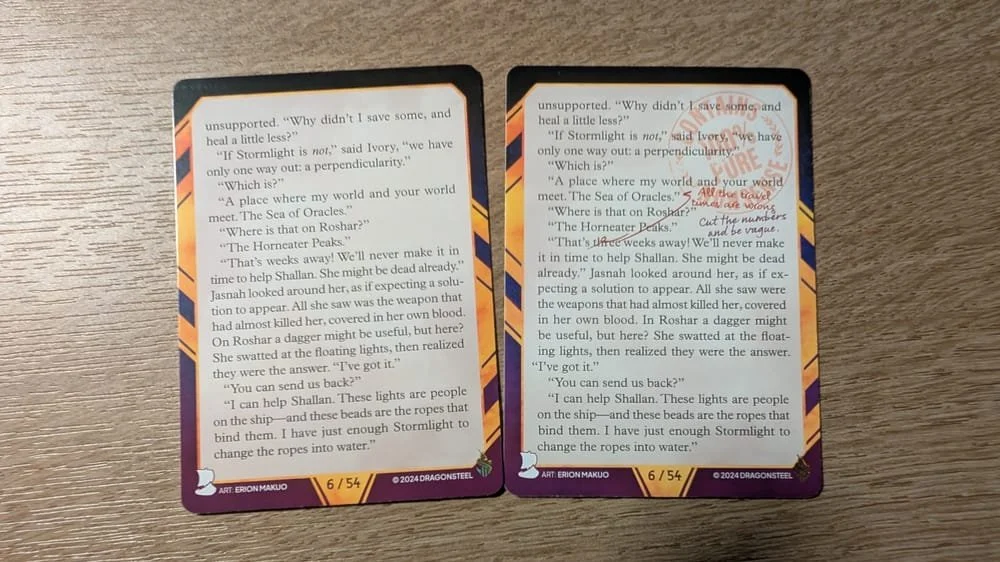 unsupported. “Why didn’t I save some, and
heal a little less?”
“If Stormlight is not,” said Ivory, “we have
only one way out: a perpendicularity.”
“Which is?”
“A place where my world and your world
meet. The Sea of Oracles.”
“Where is that on Roshar?”
“The Horneater Peaks.”
“That’s weeks away! We’ll never make it in
time to help Shallan. She might be dead already.”
Jasnah looked around her, as if expecting a solu-
tion to appear. All she saw was the weapon that
had almost killed her, covered in her own blood.
On Roshar a dagger might be useful, but here?
She swatted at the floating lights, then realized
they were the answer. “I’ve got it.”
“You can send us back?”
“I can help Shallan. These lights are people
on the ship—and these beads are the ropes that
bind them. I have just enough Stormlight to
change the ropes into water.”
ART: ERION MAKUO
6 / 54
© 2024 DRAGONSTEEL
unsupported. “Why didn’t I save some, and
heal a little less?”
“If Stormlight is not,” said Ivory, “we have
only one way out: a perpendicularity.”
“Which is?”
“A place where my world and your world
meet. The Sea of Oracles.”
“Where is that on Roshar?”
“The Horneater Peaks.”
“That’s three weeks away! We’ll never make
it in time to help Shallan. She might be dead
already.” Jasnah looked around her, as if ex-
pecting a solution to appear. All she saw were
the weapons that had almost killed her, covered
in her own blood. In Roshar a dagger might
be useful, but here? She swatted at the float-
ing lights, then realized they were the answer.
“I’ve got it.”
“You can send us back?”
“I can help Shallan. These lights are people
on the ship—and these beads are the ropes that
bind them. I have just enough Stormlight to
change the ropes into water.”
CONTAINS
100%
PURE
All the travel
times are wrong
Cut the numbers
and be vague.
ART: ERION MAKUO
6 / 54
© 2024 DRAGONSTEEL